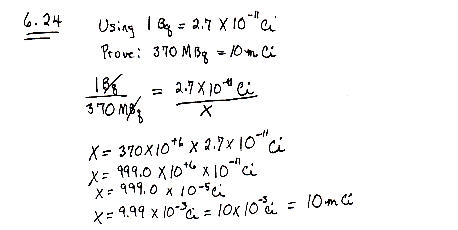 6.24 Using 1 Bq = 2.7 X 10⁻¹¹ Ci
Prove: 370 MBq = 10 m Ci
1 Bq / 370 MBq = 2.7 X 10⁻¹¹ Ci / X
X = 370 X 10⁺⁶ X 2.7 X 10⁻¹¹ Ci
X = 999.0 X 10⁺⁶ X 10⁻¹¹ Ci
X = 999.0 X 10⁻⁵ Ci
X = 9.99 X 10⁻³ Ci = 10 X 10⁻³ Ci = 10 m Ci